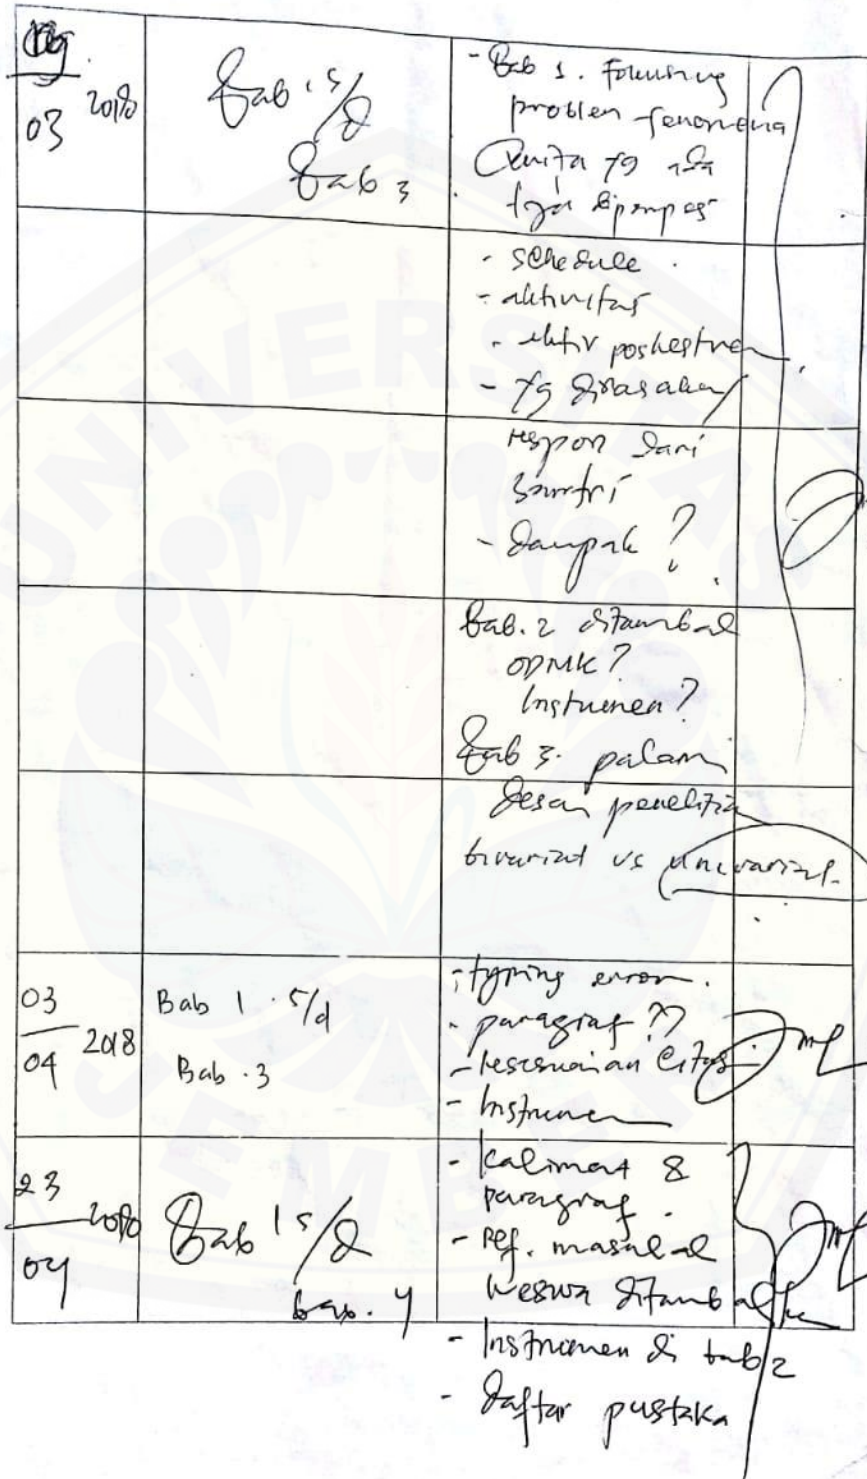 03 2018
Bab 1 s/d
Bab 3
- Bab 1. Fokusing
problem fenomena
yg
- schedule
- aktivitas
- aktiv poskestren
- yg dirasakan
respon dari
santri
- dampak?
Bab. 2 ditambah
ODMK?
Instrumen?
Bab 3. pahami
desain penelitian
bivariat vs univariat
03
04 2018
Bab 1 s/d
Bab 3
- typing error.
- paragraf??
- kesesuaian citasi
- Instrumen
23
04
Bab 1 s/d
bab. 4
- Kalimat &
paragraf.
- Ref. masalah
keswa ditambahkan
- Instrumen di bab 2
- daftar pustaka
UNIVERSITAS
JEMBER